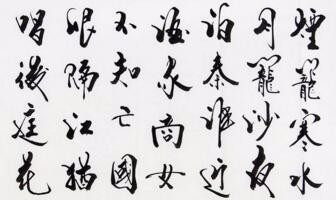 煙籠寒水
月籠沙夜
泊秦淮近
酒家商女
不知亡國
恨隔江猶
唱後庭花